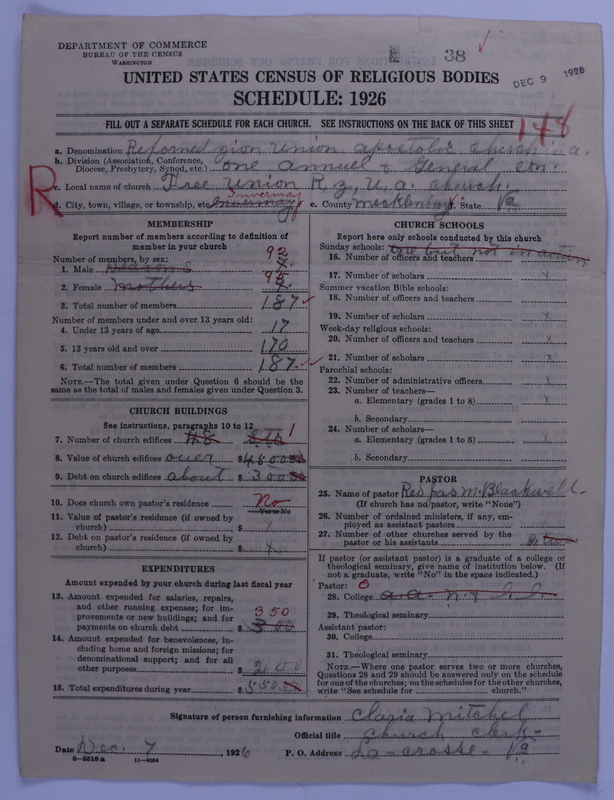 DEPARTMENT OF COMMERCE
BUREAU OF THE CENSUS
WASHINGTON
38
DEC 9 1926
UNITED STATES CENSUS OF RELIGIOUS BODIES
SCHEDULE: 1926
FILL OUT A SEPARATE SCHEDULE FOR EACH CHURCH. SEE INSTRUCTIONS ON THE BACK OF THIS SHEET
148
a. Denomination Reformed zion union apostolic church in a.
b. Division (Association, Conference, Diocese, Presbytery, Synod, etc.) one annuel + General con.
R
c. Local name of church Free union R, z, U, a. church.
d. City, town, village, or township, etc. Invermay e. County mecklenburg f. State Va
MEMBERSHIP
Report number of members according to definition of member in your church
Number of members, by sex:
1. Male 92
2. Female mothers 95
3. Total number of members 187
Number of members under and over 13 years old:
4. Under 13 years of age 17
5. 13 years old and over 170
6. Total number of members 187
NOTE.—The total given under Question 6 should be the same as the total of males and females given under Question 3.
CHURCH BUILDINGS
See instructions, paragraphs 10 to 12
7. Number of church edifices 1
8. Value of church edifices over $4500
9. Debt on church edifices about $300
10. Does church own pastor's residence No
Yes or No
11. Value of pastor's residence (if owned by church) $
12. Debt on pastor's residence (if owned by church) $ x
EXPENDITURES
Amount expended by your church during last fiscal year
13. Amount expended for salaries, repairs, and other running expenses; for improvements or new buildings; and for payments on church debt $ 350 300
14. Amount expended for benevolences, including home and foreign missions; for denominational support; and for all other purposes $ 200
15. Total expenditures during year $ 550
CHURCH SCHOOLS
Report here only schools conducted by this church
Sunday schools: one but not in action
16. Number of officers and teachers
17. Number of scholars x
Summer vacation Bible schools:
18. Number of officers and teachers
19. Number of scholars x
Week-day religious schools:
20. Number of officers and teachers
21. Number of scholars x
Parochial schools:
22. Number of administrative officers x
23. Number of teachers—
a. Elementary (grades 1 to 8) x
b. Secondary
24. Number of scholars—
a. Elementary (grades 1 to 8) x
b. Secondary
PASTOR
25. Name of pastor M. Blackwell.
(If church has no pastor, write "None")
26. Number of ordained ministers, if any, employed as assistant pastors
27. Number of other churches served by the pastor or his assistants
If pastor (or assistant pastor) is a graduate of a college or theological seminary, give name of institution below. (If not a graduate, write "No" in the space indicated.)
Pastor: 0
28. College
29. Theological seminary
Assistant pastor:
30. College
31. Theological seminary
NOTE.—Where one pastor serves two or more churches, Questions 28 and 29 should be answered only on the schedule for one of the churches; on the schedules for the other churches, write "See schedule for church."
Signature of person furnishing information Claria Mitchel
Official title church clerk
Date Dec. 7, 1926 P. O. Address La-crosse-Va
8—5518 a 11—9064